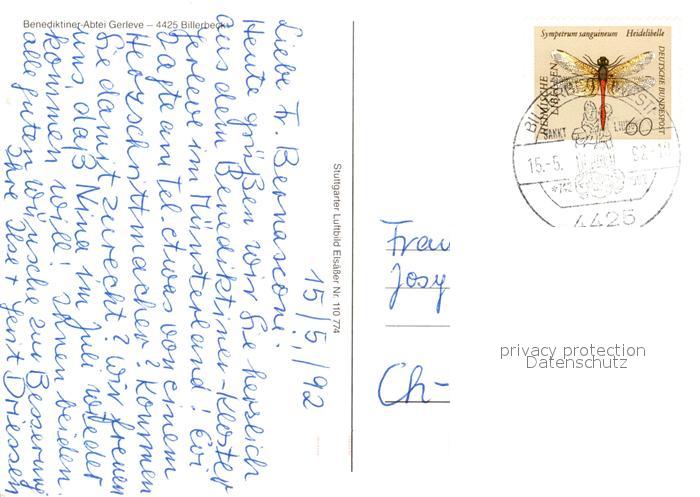 Benediktiner-Abtei Gerleve – 4425 Billerbeck
15/5./92
Liebe Fr. Bernasconi.
Heute grüßen wir Sie herzlich
aus dem Benediktiner-Kloster
Gerleve im Münsterland! Evi
sagte am Tel. etwas von einem
Herzschrittmacher? Kommen
Sie damit zurecht? Wir freuen
uns, daß Nina im Juli wieder
kommen will! Ihnen beiden
alle guten Wünsche zur Besserung
Ihre Ilse + Gert Driessen
Stuttgarter Luftbild Elsäßer Nr. 110 774
Sympetrum sanguineum Heidelibelle
HEIMISCHE
LIBELLEN
DEUTSCHE BUNDESPOST
60
SANKT
15.-5. 92
4425
Frau
Josy
Ch-
privacy protection
Datenschutz